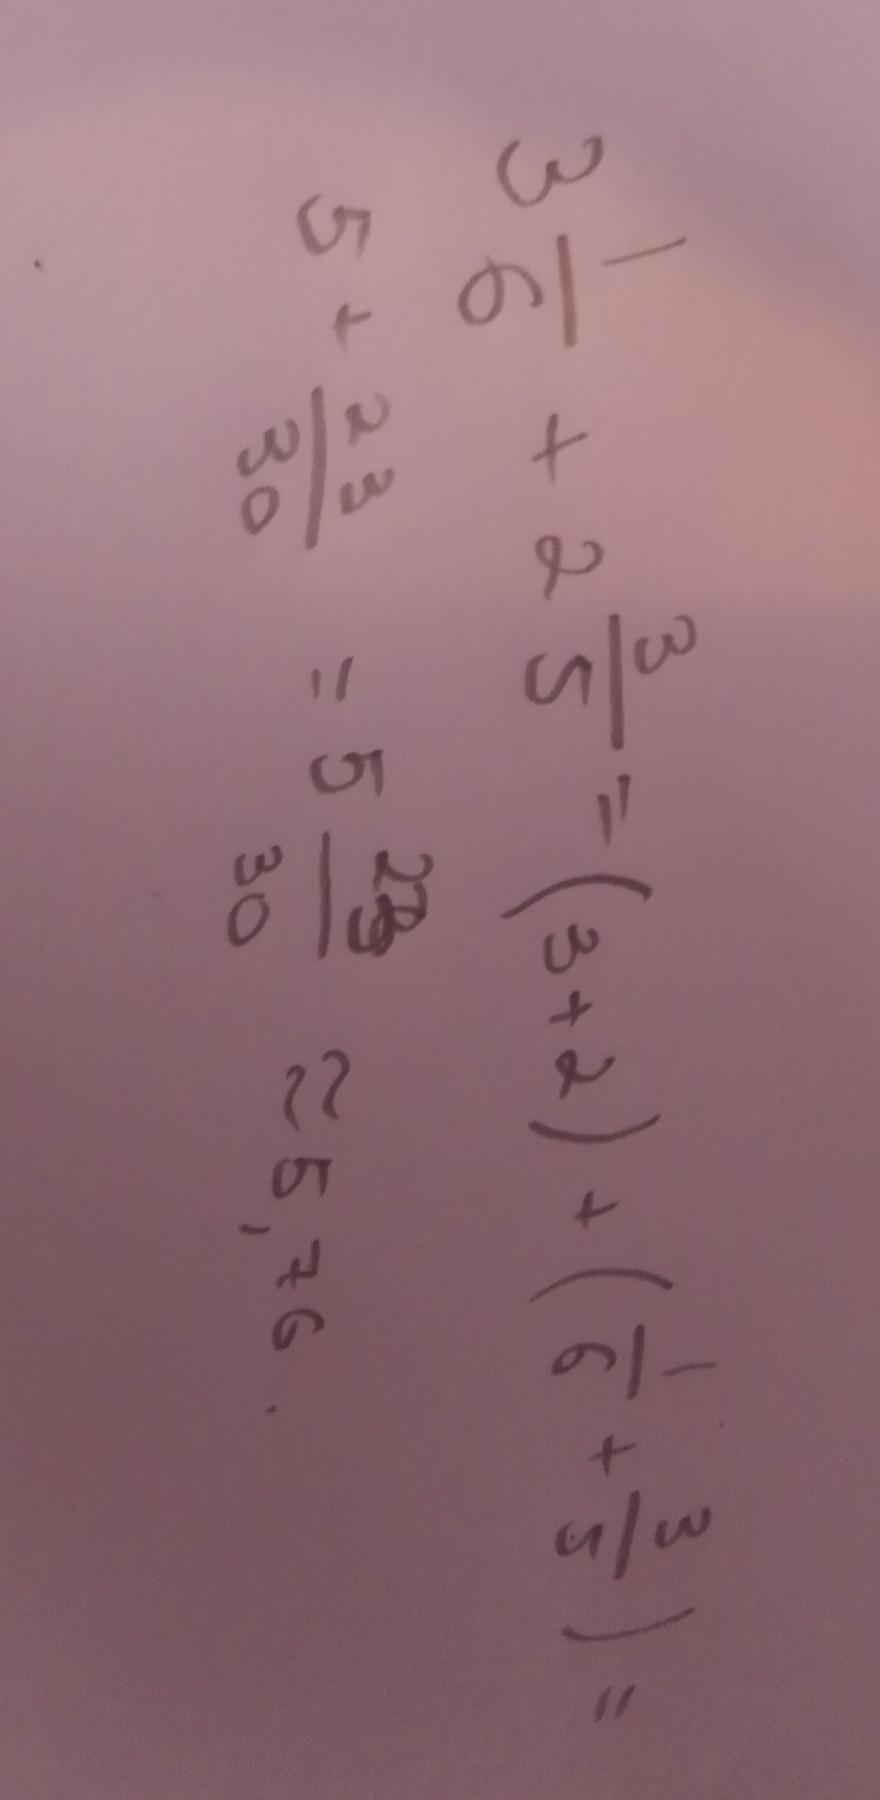 3 1/6 + 2 3/5 = (3+2) + (1/6 + 3/5) =
5 + 23/30 = 5 23/30 ≈ 5,76.